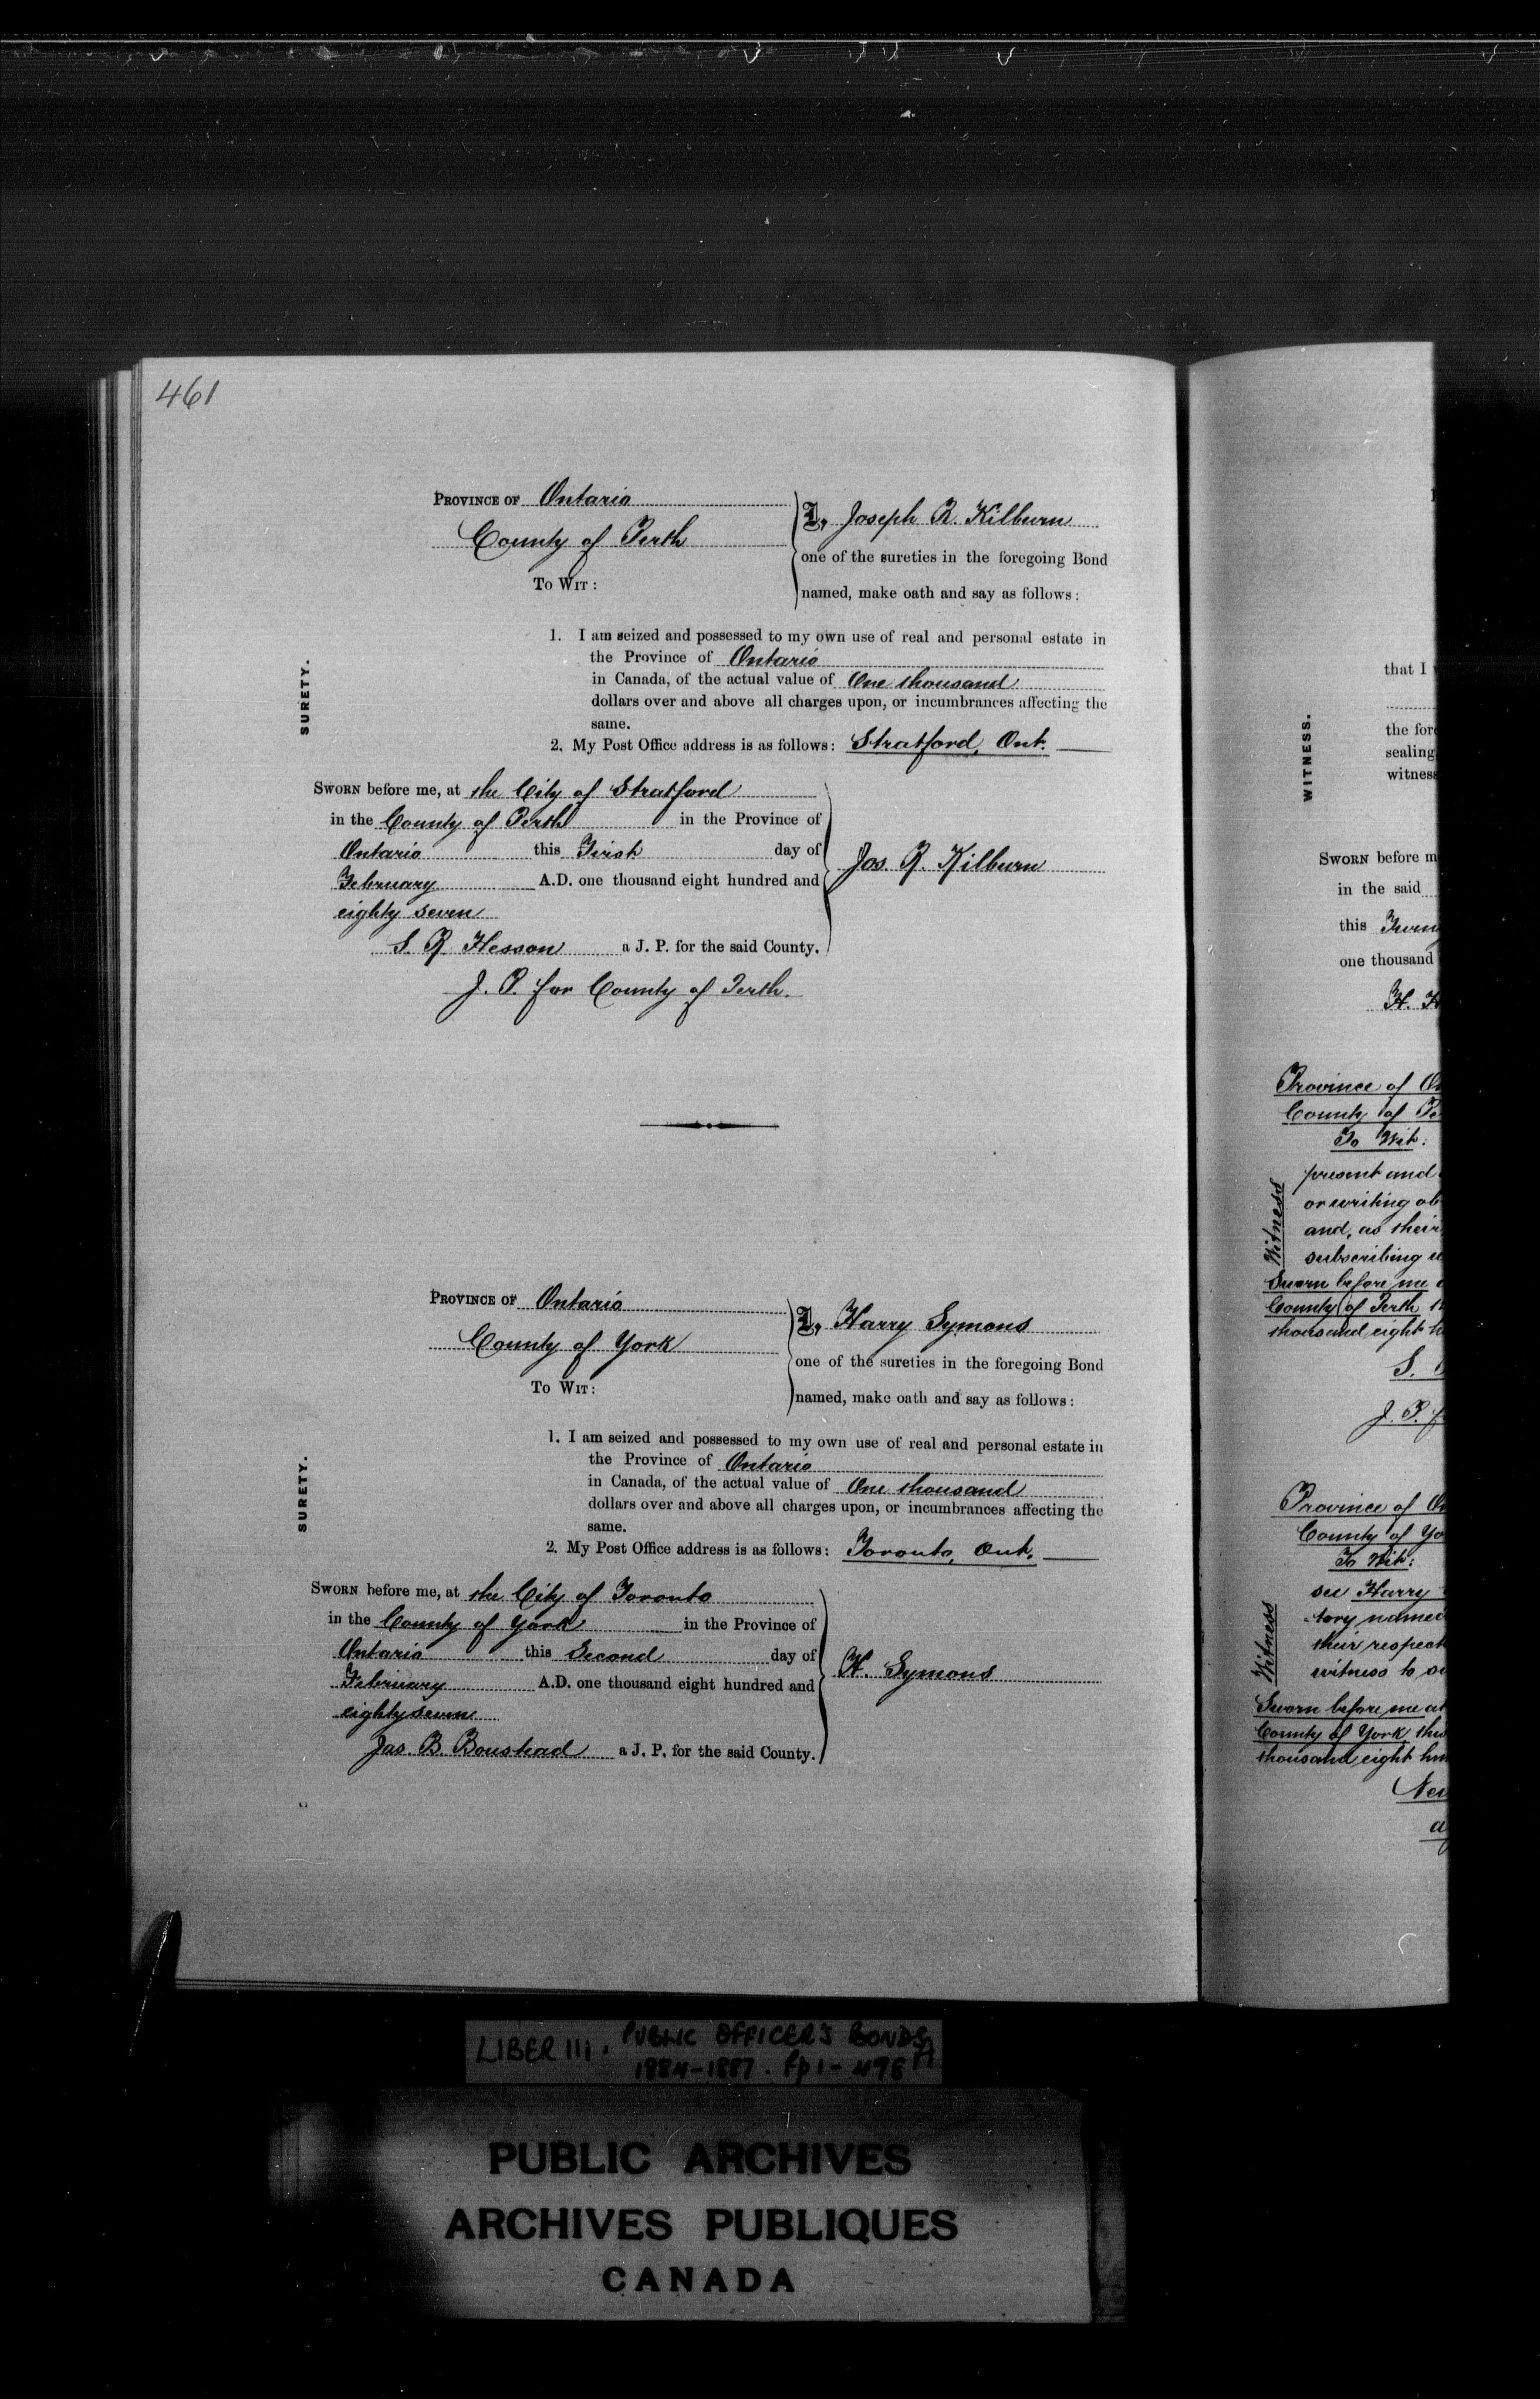 461
PROVINCE OF Ontario
County of Perth
TO WIT:
I, Joseph R. Kilburn
one of the sureties in the foregoing Bond
named, make oath and say as follows:
SURETY.
1. I am seized and possessed to my own use of real and personal estate in
the Province of Ontario
in Canada, of the actual value of One thousand
dollars over and above all charges upon, or incumbrances affecting the
same.
2. My Post Office address is as follows: Stratford, Ont.
SWORN before me, at the City of Stratford
in the County of Perth in the Province of
Ontario this First day of
February A.D. one thousand eight hundred and
eighty seven
Jos. R. Kilburn
S. R. Hesson a J. P. for the said County.
J. P. for County of Perth.
PROVINCE OF Ontario
County of York
TO WIT:
I, Harry Symons
one of the sureties in the foregoing Bond
named, make oath and say as follows:
SURETY.
1. I am seized and possessed to my own use of real and personal estate in
the Province of Ontario
in Canada, of the actual value of One thousand
dollars over and above all charges upon, or incumbrances affecting the
same.
2. My Post Office address is as follows: Toronto, Ont.
SWORN before me, at the City of Toronto
in the County of York in the Province of
Ontario this Second day of
February A.D. one thousand eight hundred and
eighty seven
H. Symons
Jas. B. Boustead a J. P. for the said County.
that I
WITNESS.
the for
sealing
witness
SWORN before m
in the said
this
one thousand
H. H
Province of On
County of Pe
To Wit:
Witness
present and
or writing ob
and, as their
subscribing
Sworn before me
County of Perth
thousand eight h
S.
J. P. f
Province of On
County of Yo
To Wit:
Witness
see Harry
-tory named
their respect
witness to
Sworn before me at
County of York this
thousand eight hun
Ne
a
LIBER III. PUBLIC OFFICER'S BONDS
1884-1887. fp 1-498A
PUBLIC ARCHIVES
ARCHIVES PUBLIQUES
CANADA